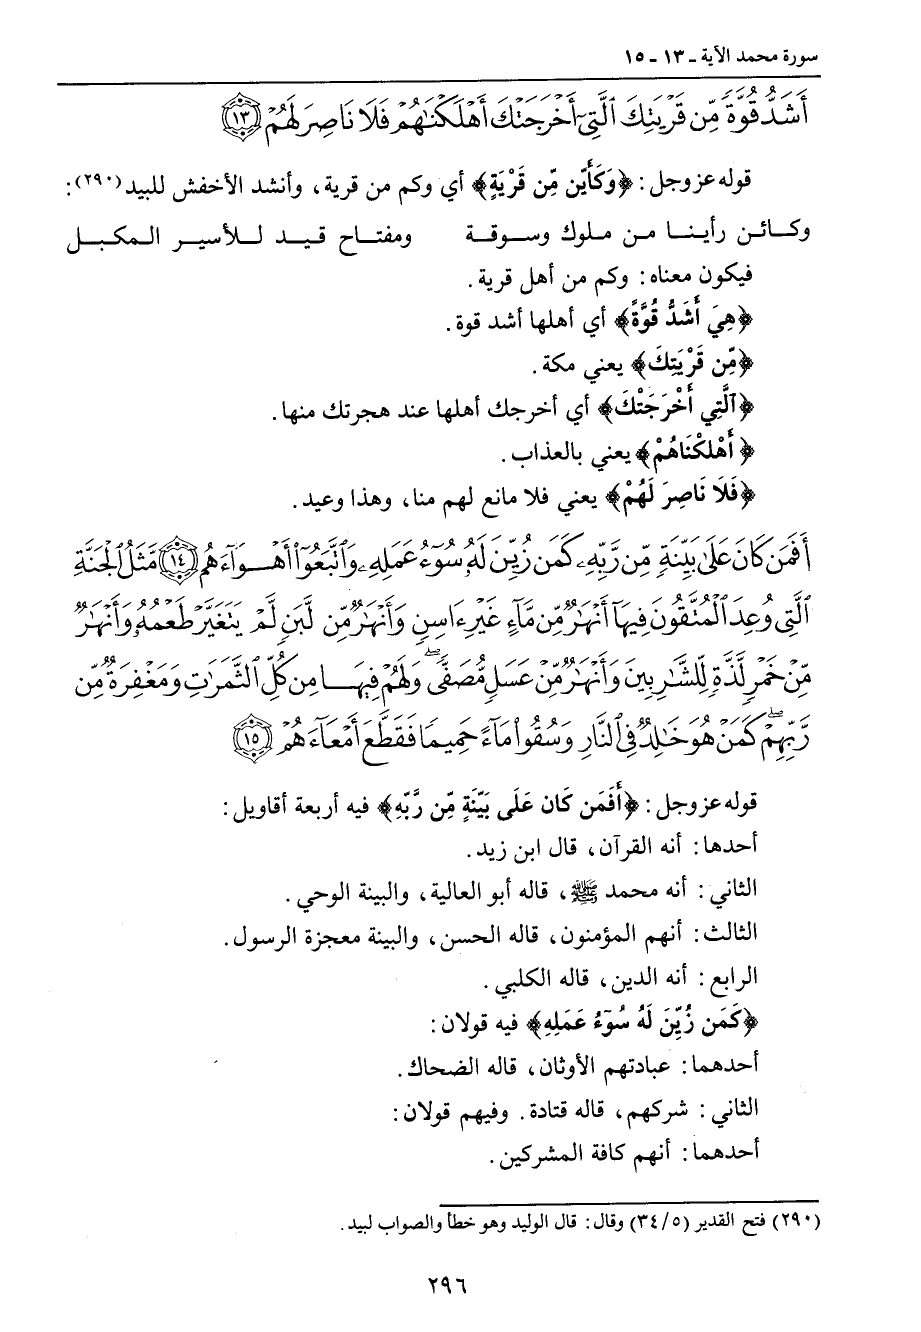 سورة محمد الآية ـ ١٣ ـ ١٥
أَشَدُّ قُوَّةً مِّن قَرْيَتِكَ ٱلَّتِىٓ أَخْرَجَتْكَ أَهْلَكْنَـٰهُمْ فَلَا نَاصِرَ لَهُمْ ﴿١٣﴾
قوله عز وجل: ﴿وَكَأَيِّن مِّن قَرْيَةٍ﴾ أي وكم من قرية، وأنشد الأخفش للبيد(٢٩٠):
وكـائـن رأينـا مـن ملوك وسـوقـة ومفتـاح قيـد لـلأسيـر المـكبـل
فيكون معناه: وكم من أهل قرية.
﴿هِيَ أَشَدُّ قُوَّةً﴾ أي أهلها أشد قوة.
﴿مِّن قَرْيَتِكَ﴾ يعني مكة.
﴿ٱلَّتِي أَخْرَجَتْكَ﴾ أي أخرجك أهلها عند هجرتك منها.
﴿أَهْلَكْنَاهُمْ﴾ يعني بالعذاب.
﴿فَلَا نَاصِرَ لَهُمْ﴾ يعني فلا مانع لهم منا، وهذا وعيد.
أَفَمَن كَانَ عَلَىٰ بَيِّنَةٍ مِّن رَّبِّهِۦ كَمَن زُيِّنَ لَهُۥ سُوٓءُ عَمَلِهِۦ وَٱتَّبَعُوٓا۟ أَهْـوَآءَهُم ﴿١٤﴾ مَّثَلُ ٱلْجَنَّةِ
ٱلَّتِى وُعِدَ ٱلْمُتَّقُونَ فِيهَآ أَنْهَـٰرٌ مِّن مَّآءٍ غَيْرِ ءَاسِنٍ وَأَنْهَـٰرٌ مِّن لَّبَنٍ لَّمْ يَتَغَيَّرْ طَعْمُهُۥ وَأَنْهَـٰرٌ
مِّنْ خَمْرٍ لَّذَّةٍ لِّلشَّـٰرِبِينَ وَأَنْهَـٰرٌ مِّنْ عَسَلٍ مُّصَفًّى ۖ وَلَهُمْ فِيهَـا مِن كُلِّ ٱلثَّمَرَٰتِ وَمَغْفِرَةٌ مِّن
رَّبِّهِمْ ۖ كَمَنْ هُوَ خَـٰلِدٌ فِى ٱلنَّارِ وَسُقُوا۟ مَآءً حَمِيمًا فَقَطَّعَ أَمْعَآءَهُمْ ﴿١٥﴾
قوله عز وجل: ﴿أَفَمَن كَان عَلَى بَيِّنَةٍ مِّن رَّبِّهِ﴾ فيه أربعة أقاويل:
أحدها: أنه القرآن، قال ابن زيد.
الثاني: أنه محمد ﷺ، قاله أبو العالية، والبينة الوحي.
الثالث: أنهم المؤمنون، قاله الحسن، والبينة معجزة الرسول.
الرابع: أنه الدين، قاله الكلبي.
﴿كَمَن زُيِّنَ لَهُ سُوٓءُ عَمَلِهِ﴾ فيه قولان:
أحدهما: عبادتهم الأوثان، قاله الضحاك.
الثاني: شركهم، قاله قتادة. وفيهم قولان:
أحدهما: أنهم كافة المشركين.
(٢٩٠) فتح القدير (٣٤/٥) وقال: قال الوليد وهو خطأ والصواب لبيد.
٢٩٦